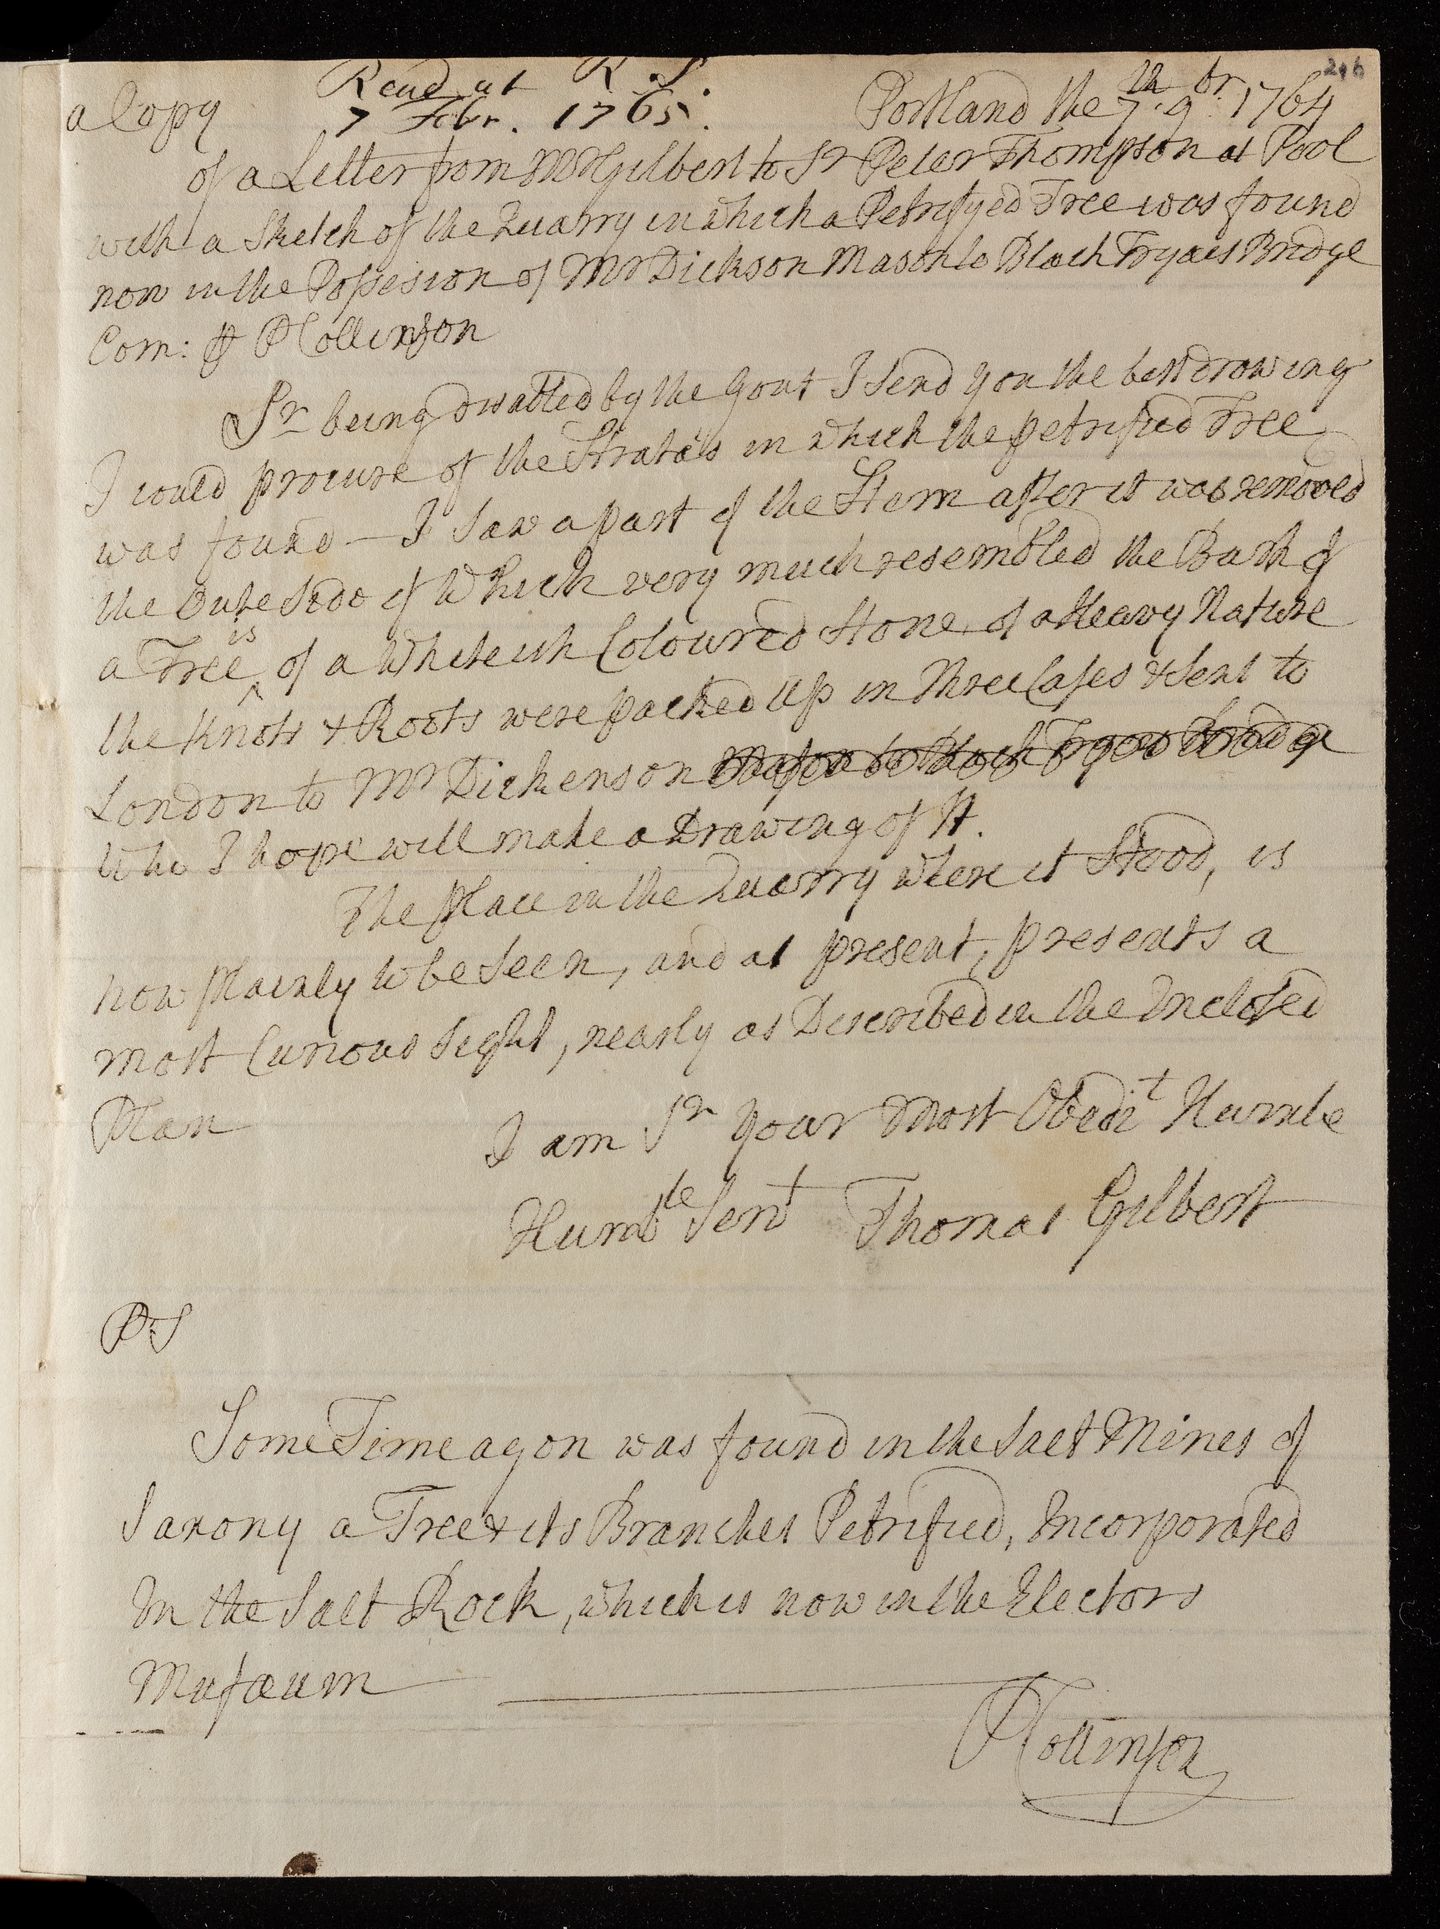 216
Read at R. S.
7 Febr. 1765.
Portland the 7th. 9br. 1764
a Copy
of a Letter from Mr Gilbert to Sr Peter Thompson at Pool
with a Sketch of the Quarry in which a Petrifyed Tree was found
now in the Possesion of Mr Dickson Mason to Black Fryars Bridge
Com: P Collinson
Sr being disabled by the Gout I send you the best drowing
I could procure of the Strata's in which the petrified Tree
was found — I saw a part of the Stem after it was removed
the Oute Side of Which very much resembled the Bark of
a Tree is of a Whiteish Coloured Stone, of a Heavy Nature
the Knots & Roots were packed up in Three Cases & sent to
London to Mr Dickenson Mason to Black Fryars Bridge
Who I hope will make a Drawing of It.
The Place in the Quarry where it Stood, is
now Plainly to be Seen, and at present, presents a
most Curious Sight, nearly as Described in the Inclosed
Plan
I am Sr your Most Obedit Humble
Humble Servt Thomas Gilbert
PS
Some Time agon was found in the Salt Mines of
Saxony a Tree & its Branches Petrified, Incorporated
In the Salt Rock, which is now in the Electors
Musæum
P Collinson